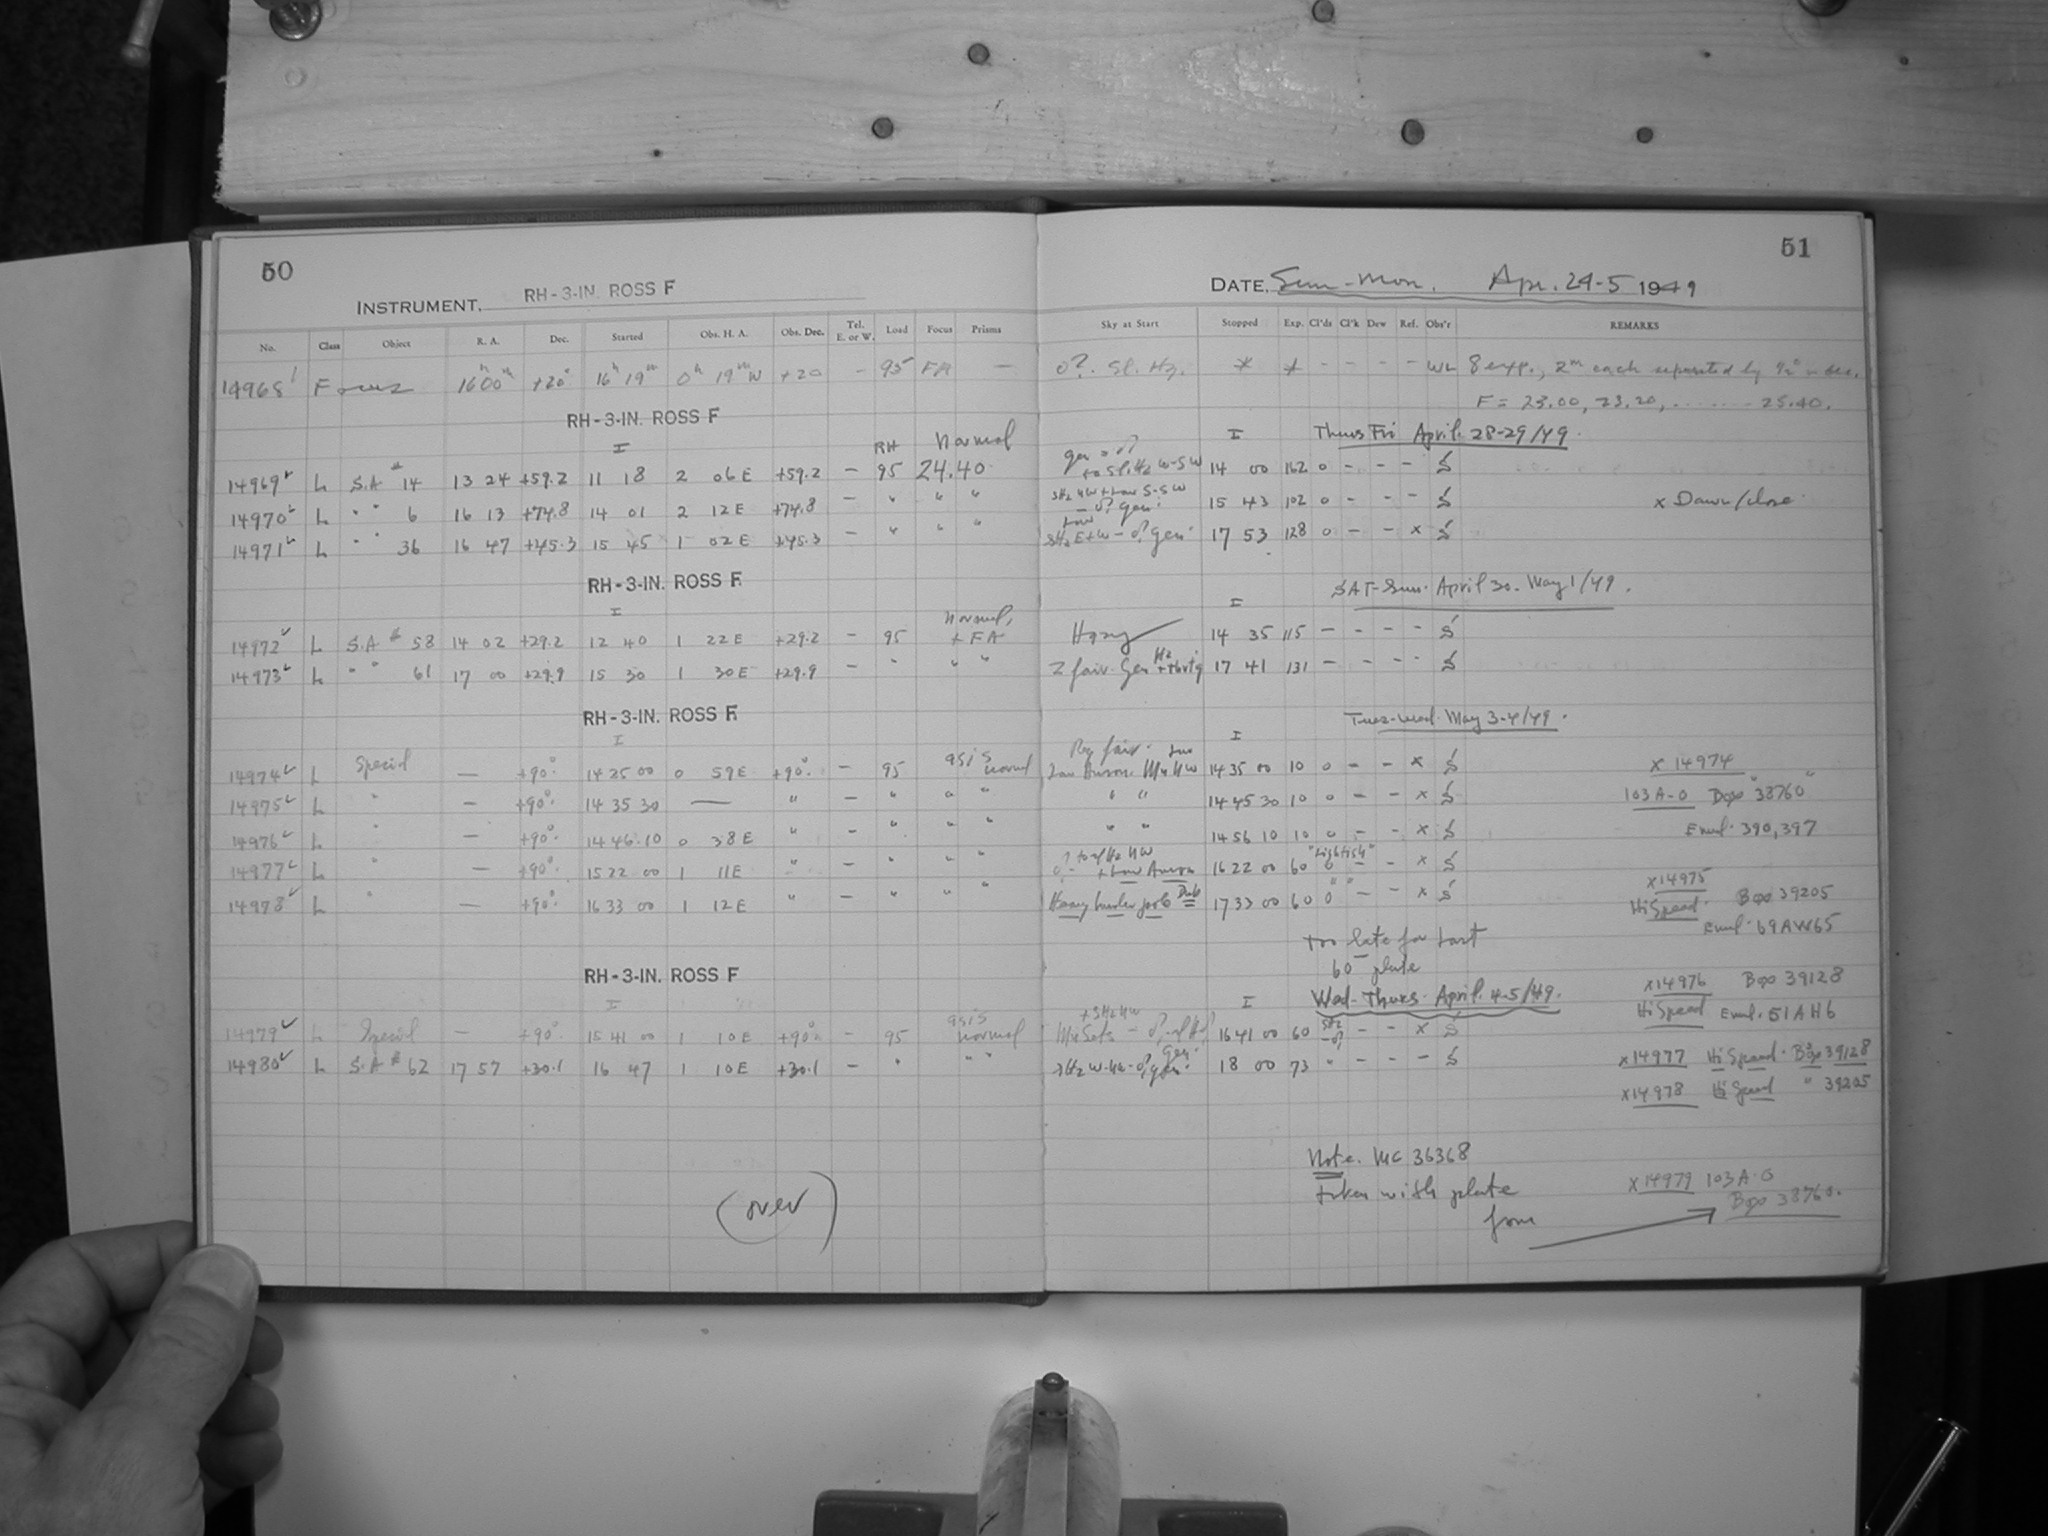 50
INSTRUMENT. RH-3-IN. ROSS F
No. Class Object R. A. Dec. Started Obs. H. A. Obs. Dec. Tel. E. or W. Load Focus Prisms
14968 Focus 16h 00m +20° 16h 19m 0h 19m W +20 - 95 FA —
RH-3-IN. ROSS F
I RH Normal
14969 L S.A # 14 13 24 +59.2 11 18 2 06 E +59.2 - 95 24.40
14970 L " " 6 16 13 +74.8 14 01 2 12 E +74.8 - " " "
14971 L " " 36 16 47 +45.3 15 45 1 02 E +45.3 - " " "
RH-3-IN. ROSS F
I Normal,
14972 L S.A # 58 14 02 +29.2 12 40 1 22 E +29.2 - 95 + FA
14973 L " " 61 17 00 +29.9 15 30 1 30 E +29.9 - " " "
RH-3-IN. ROSS F
I
14974 L Special — +90° 14 25 00 0 59 E +90° - 95 as is normal
14975 L " — +90° 14 35 30 — " - " " "
14976 L " — +90° 14 46 10 0 38 E " - " " "
14977 L " — +90° 15 22 00 1 11 E " - " " "
14978 L " — +90° 16 33 00 1 12 E " - " " "
RH-3-IN. ROSS F
I
14979 L Special — +90° 15 41 00 1 10 E +90° - 95 as is normal
14980 L S.A # 62 17 57 +30.1 16 47 1 10 E +30.1 - " " "
(over)
51
DATE. Sun-Mon. Apr. 24-5 1949
Sky at Start Stopped Exp. Cl'ds Cl'k Dew Ref. Obs'r REMARKS
0?. Sl. Hz. * * - - - - WL 8 exp., 2m each separated by 1/2° in dec.
F = 23.00, 23.20, ....... 25.40.
I Thurs Fri April 28-29/49.
14 00 162 0 - - - S
15 43 102 0 - - - S x Dawn/close
17 53 128 0 - - x S
I SAT-Sun. April 30-May 1/49.
Hazy 14 35 115 - - - - S
Z fair. Gen Hz 17 41 131 - - - - S
I Tues-Wed. May 3-4/49.
14 35 00 10 0 - - x S x 14974
" " 14 45 30 10 0 - - x S 103A-O Box 38760
" " 14 56 10 10 0 - - x S Emul. 390,397
16 22 00 60 0 "Lightish" - - x S
17 33 00 60 0 " - - x S x14975
HiSpeed. Box 39205
Emul. 69AW65
too late for last
60 plate
x14976 Box 39128
HiSpeed Emul. 51AH6
I Wed-Thurs. April 4-5/49.
16 41 00 60 - - x S
18 00 73 " - - - S
x14977 HiSpeed. Box 39128
x14978 Hi Speed " 39205
Note. MC 36368
taken with plate
from
x14979 103A-O
Box 38760.